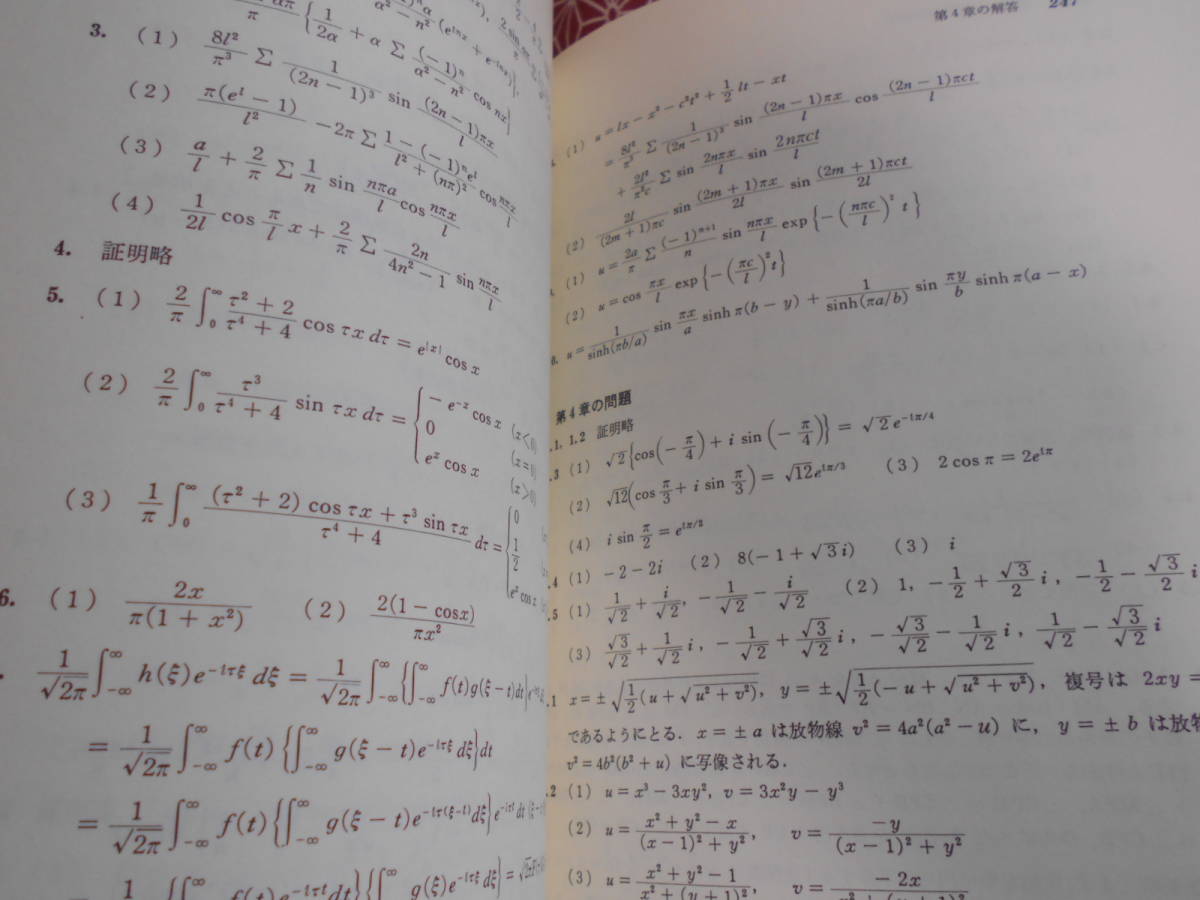 3. (1) 8l²/π³ Σ 1/(2n − 1)³ sin (2n − 1)πx/l
(2) π(eˡ − 1)/l² − 2π Σ 1 − (−1)ⁿeˡ/l² + (nπ)² cos nπx/l
(3) a/l + 2/π Σ 1/n sin nπa/l cos nπx/l
(4) 1/2l cos π/l x + 2/π Σ 2n/4n² − 1 sin nπx/l
4. 証明略
5. (1) 2/π ∫₀^∞ τ² + 2/τ⁴ + 4 cos τx dτ = e^|x| cos x
(2) 2/π ∫₀^∞ τ³/τ⁴ + 4 sin τx dτ = { − e⁻ˣ cos x (x<0)
0 (x=0)
eˣ cos x (x>0)
(3) 1/π ∫₀^∞ (τ² + 2) cos τx + τ³ sin τx/τ⁴ + 4 dτ = { 0
1/2
eˣ cos x
6. (1) 2x/π(1 + x²) (2) 2(1 − cosx)/πx²
1/√2π ∫₋∞^∞ h(ξ)e^−iτξ dξ = 1/√2π ∫₋∞^∞ {∫₋∞^∞ f(t)g(ξ − t)dt}
= 1/√2π ∫₋∞^∞ f(t) {∫₋∞^∞ g(ξ − t)e^−iτξ dξ} dt
= 1/√2π ∫₋∞^∞ f(t) {∫₋∞^∞ g(ξ − t)e^−iτ(ξ−t) dξ} e^−iτt dt
第4章の解答 247
(1) u = lx − x² − c²t² + 1/2 lt − xt
= 8l²/π³ Σ 1/(2n − 1)³ sin (2n − 1)πx/l cos (2n − 1)πct/l
+ 2l²/π²c Σ sin 2nπx/l sin 2nπct/l
(2) 2l/(2m + 1)πc sin (2m + 1)πx/2l sin (2m + 1)πct/2l
(1) u = 2a/π Σ (−1)ⁿ⁺¹/n sin nπx/l exp {−(nπc/l)² t}
(2) u = cos πx/l exp {−(πc/l)² t}
6. u = 1/sinh(πb/a) sin πx/a sinh π(b − y) + 1/sinh(πa/b) sin πy/b sinh π(a − x)
第4章の問題
.1. 1.2 証明略
.3 (1) √2{cos(−π/4) + i sin (−π/4)} = √2 e^−iπ/4
(2) √12(cos π/3 + i sin π/3) = √12e^iπ/3 (3) 2 cos π = 2e^iπ
(4) i sin π/2 = e^iπ/2
.4 (1) −2 − 2i (2) 8(−1 + √3 i) (3) i
.5 (1) 1/√2 + i/√2, −1/√2 − i/√2 (2) 1, −1/2 + √3/2 i, −1/2 − √3/2 i
(3) √3/√2 + 1/√2 i, −1/√2 + √3/√2 i, −√3/√2 − 1/√2 i, 1/√2 − √3/√2 i
.1 x = ±√1/2(u + √u² + v²), y = ±√1/2(−u + √u² + v²), 複号は 2xy =
であるようにとる. x = ± a は放物線 v² = 4a²(a² − u) に, y = ± b は放物
v² = 4b²(b² + u) に写像される.
.2 (1) u = x³ − 3xy², v = 3x²y − y³
(2) u = x² + y² − x/(x − 1)² + y², v = −y/(x − 1)² + y²
(3) u = x² + y² − 1/x² + (y + 1)², v = − 2x